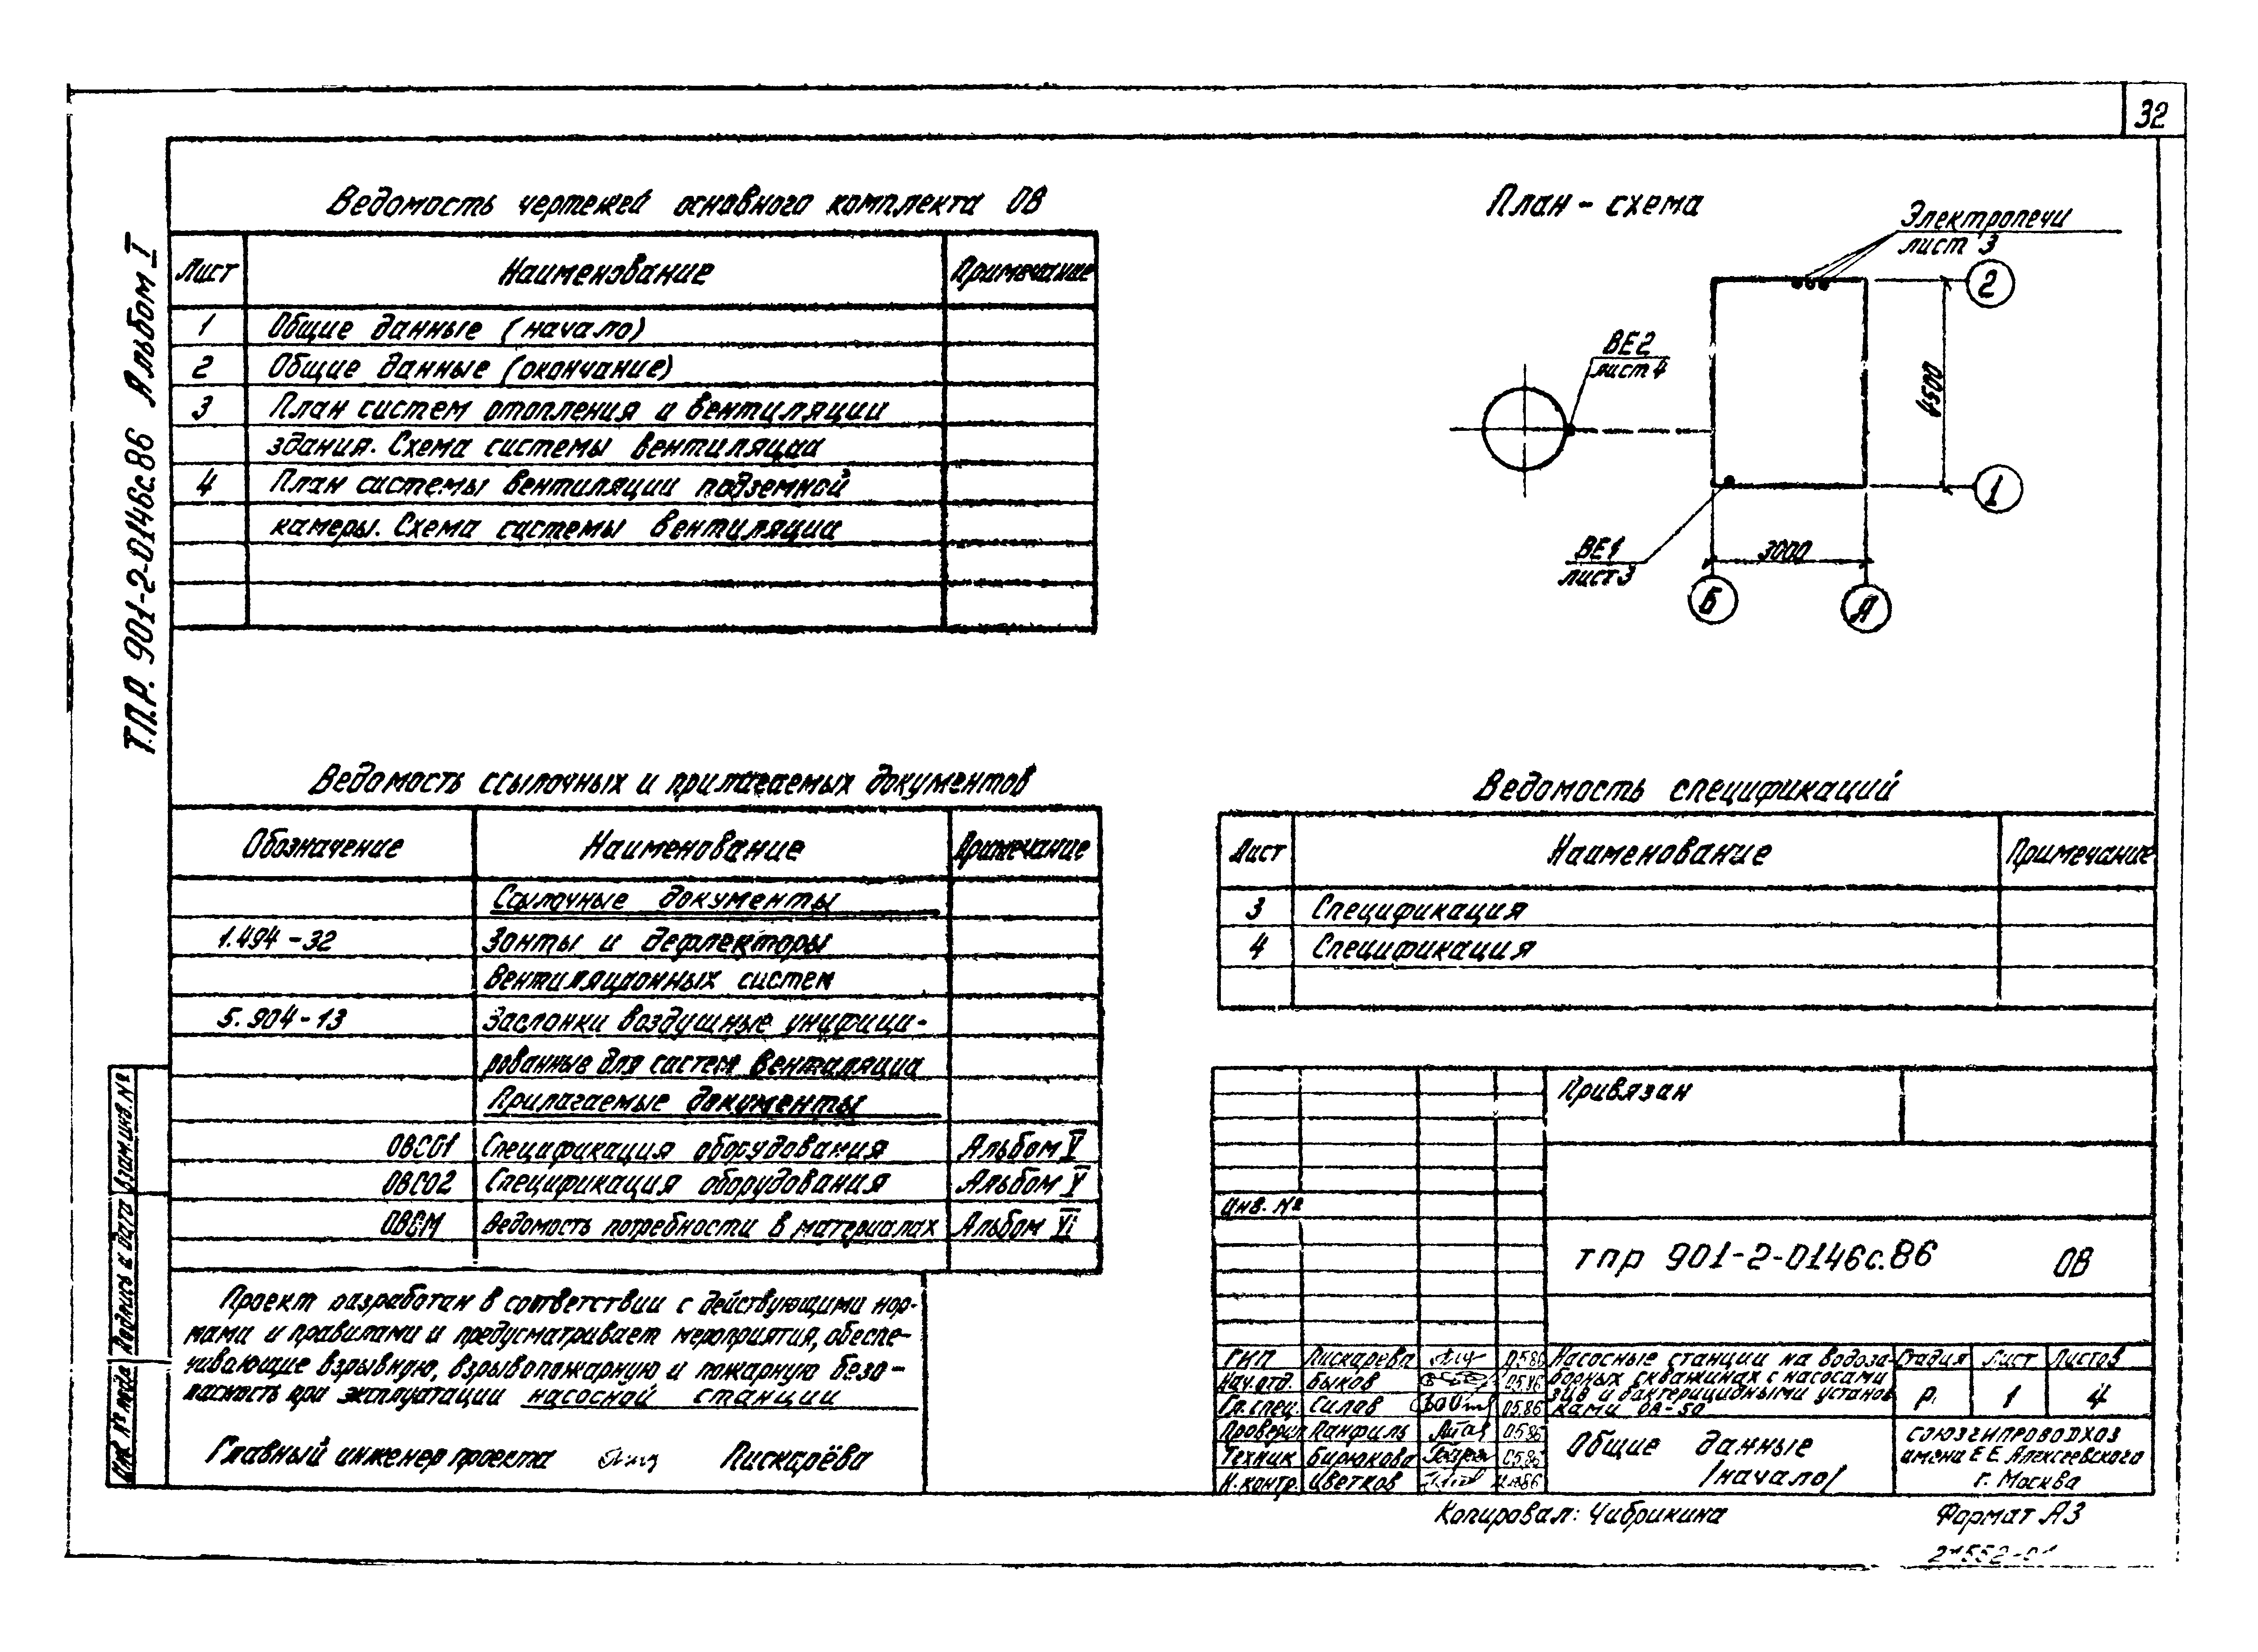 32
Т.П.Р. 901-2-0146с.86 Альбом I
Ведомость чертежей основного комплекта ОВ
Лист Наименование Примечание
1 Общие данные (начало)
2 Общие данные (окончание)
3 План систем отопления и вентиляции
здания. Схема системы вентиляции
4 План системы вентиляции подземной
камеры. Схема системы вентиляции
План-схема
Электропечи
лист 3
2
ВЕ2
лист 4
4500
1
ВЕ1
лист 3
3000
Б А
Ведомость ссылочных и прилагаемых документов
Обозначение Наименование Примечание
Ссылочные документы
1.494-32 Зонты и дефлекторы
вентиляционных систем
5.904-13 Заслонки воздушные унифици-
рованные для систем вентиляции
Прилагаемые документы
ОВСО1 Спецификация оборудования Альбом V
ОВСО2 Спецификация оборудования Альбом V
ОВВМ Ведомость потребности в материалах Альбом VI
Проект разработан в соответствии с действующими нор-
мами и правилами и предусматривает мероприятия, обеспе-
чивающие взрывную, взрывопожарную и пожарную безо-
пасность при эксплуатации насосной станции
Главный инженер проекта Пискарёва
Ведомость спецификаций
Лист Наименование Примечание
3 Спецификация
4 Спецификация
Привязан
Инв. №
тпр 901-2-0146с.86 ОВ
ГИП Пискарева 05.86
Нач.отд. Быков 05.86
Гл.спец. Силов 05.86
Проверил Панфиль 05.86
Техник Бирюкова 05.86
Н.контр. Цветков
Насосные станции на водоза-
борных скважинах с насосами
ЭЦВ и бактерицидными установ
ками ОВ-50
Стадия Лист Листов
Р 1 4
Общие данные
/начало/
СОЮЗГИПРОВОДХОЗ
имени Е.Е. Алексеевского
г. Москва
Взам.инв.№
Подпись и дата
Инв. № подл
Копировал: Чибрикина
Формат А3